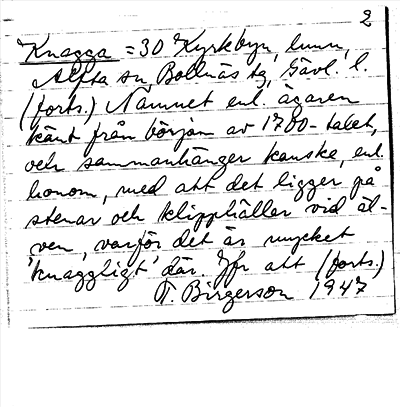 2
Knagga = 30 Kyrkbyn, lunn,
Alfta sn, Bollnäs tg, Gävl. l.
(forts.) Namnet enl. ägaren
känt från början av 1700-talet,
och sammanhänger kanske, enl.
honom, med att det ligger på
stenar och klipphällar vid äl-
ven, varför det är mycket
'knaggligt' där. Jfr att (forts.)
T. Birgerson 1947